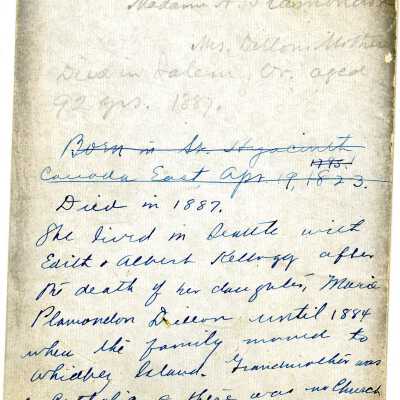 Madame A. Plamondon
Mrs. Dillons Mother
Died in Salem, Or. aged
92 yrs. 1887.
Born in St. Hyacinth
1795.
Canada East Apr. 19, 1823.
Died in 1887.
She lived in Seattle with
Edith & Albert Kellogg after
the death of her daughter, Marie
Plamondon Dillon until 1884
when the family moved to
Whidbey Island. Grandmother was
a Catholic & there was no Church